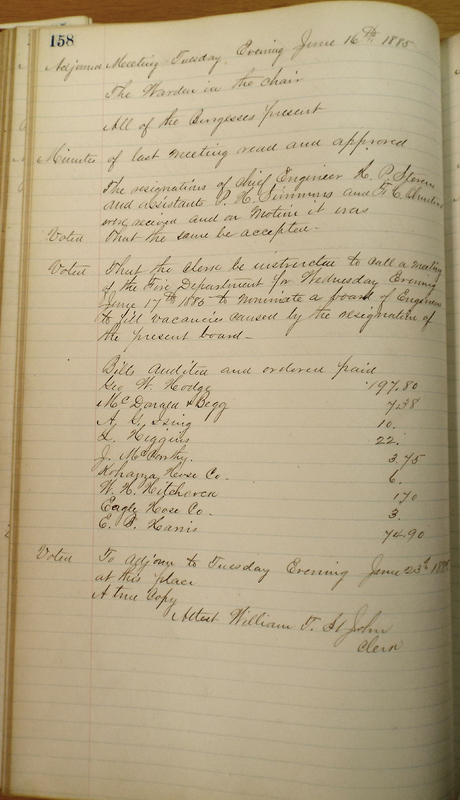 158
Adjorned Meeting Tuesday Evening June 16th 1885
The Warden in the chair
All of the Burgesses present
Minutes of last meeting read and approved
The resignations of Chief Engineer L. P. Stevens
and assistants P. H. Simmons and F. C.
were received and on motion it was
Voted that the same be accepted.
Voted That the Clerk be instructed to call a meeting
of the Fire Department for Wednesday Evening
June 17th 1885 to nominate a board of Engineers
to fill vacancies caused by the resignation of
the present board
Bills audited and ordered paid
Geo W. Hodge 197.80
McDonald & Begg 7.38
A. G. 10.
L. Higgins 22.
J. McCarthy. 3.75
Kohanza Hose Co. 6.
W. H. Hitchcock 170
Eagle Hose Co. 3.
E. B. Harris 74.90
Voted To adjourn to Tuesday Evening June 23d 1885
at this place
A true Copy
Attest William T. St John
Clerk